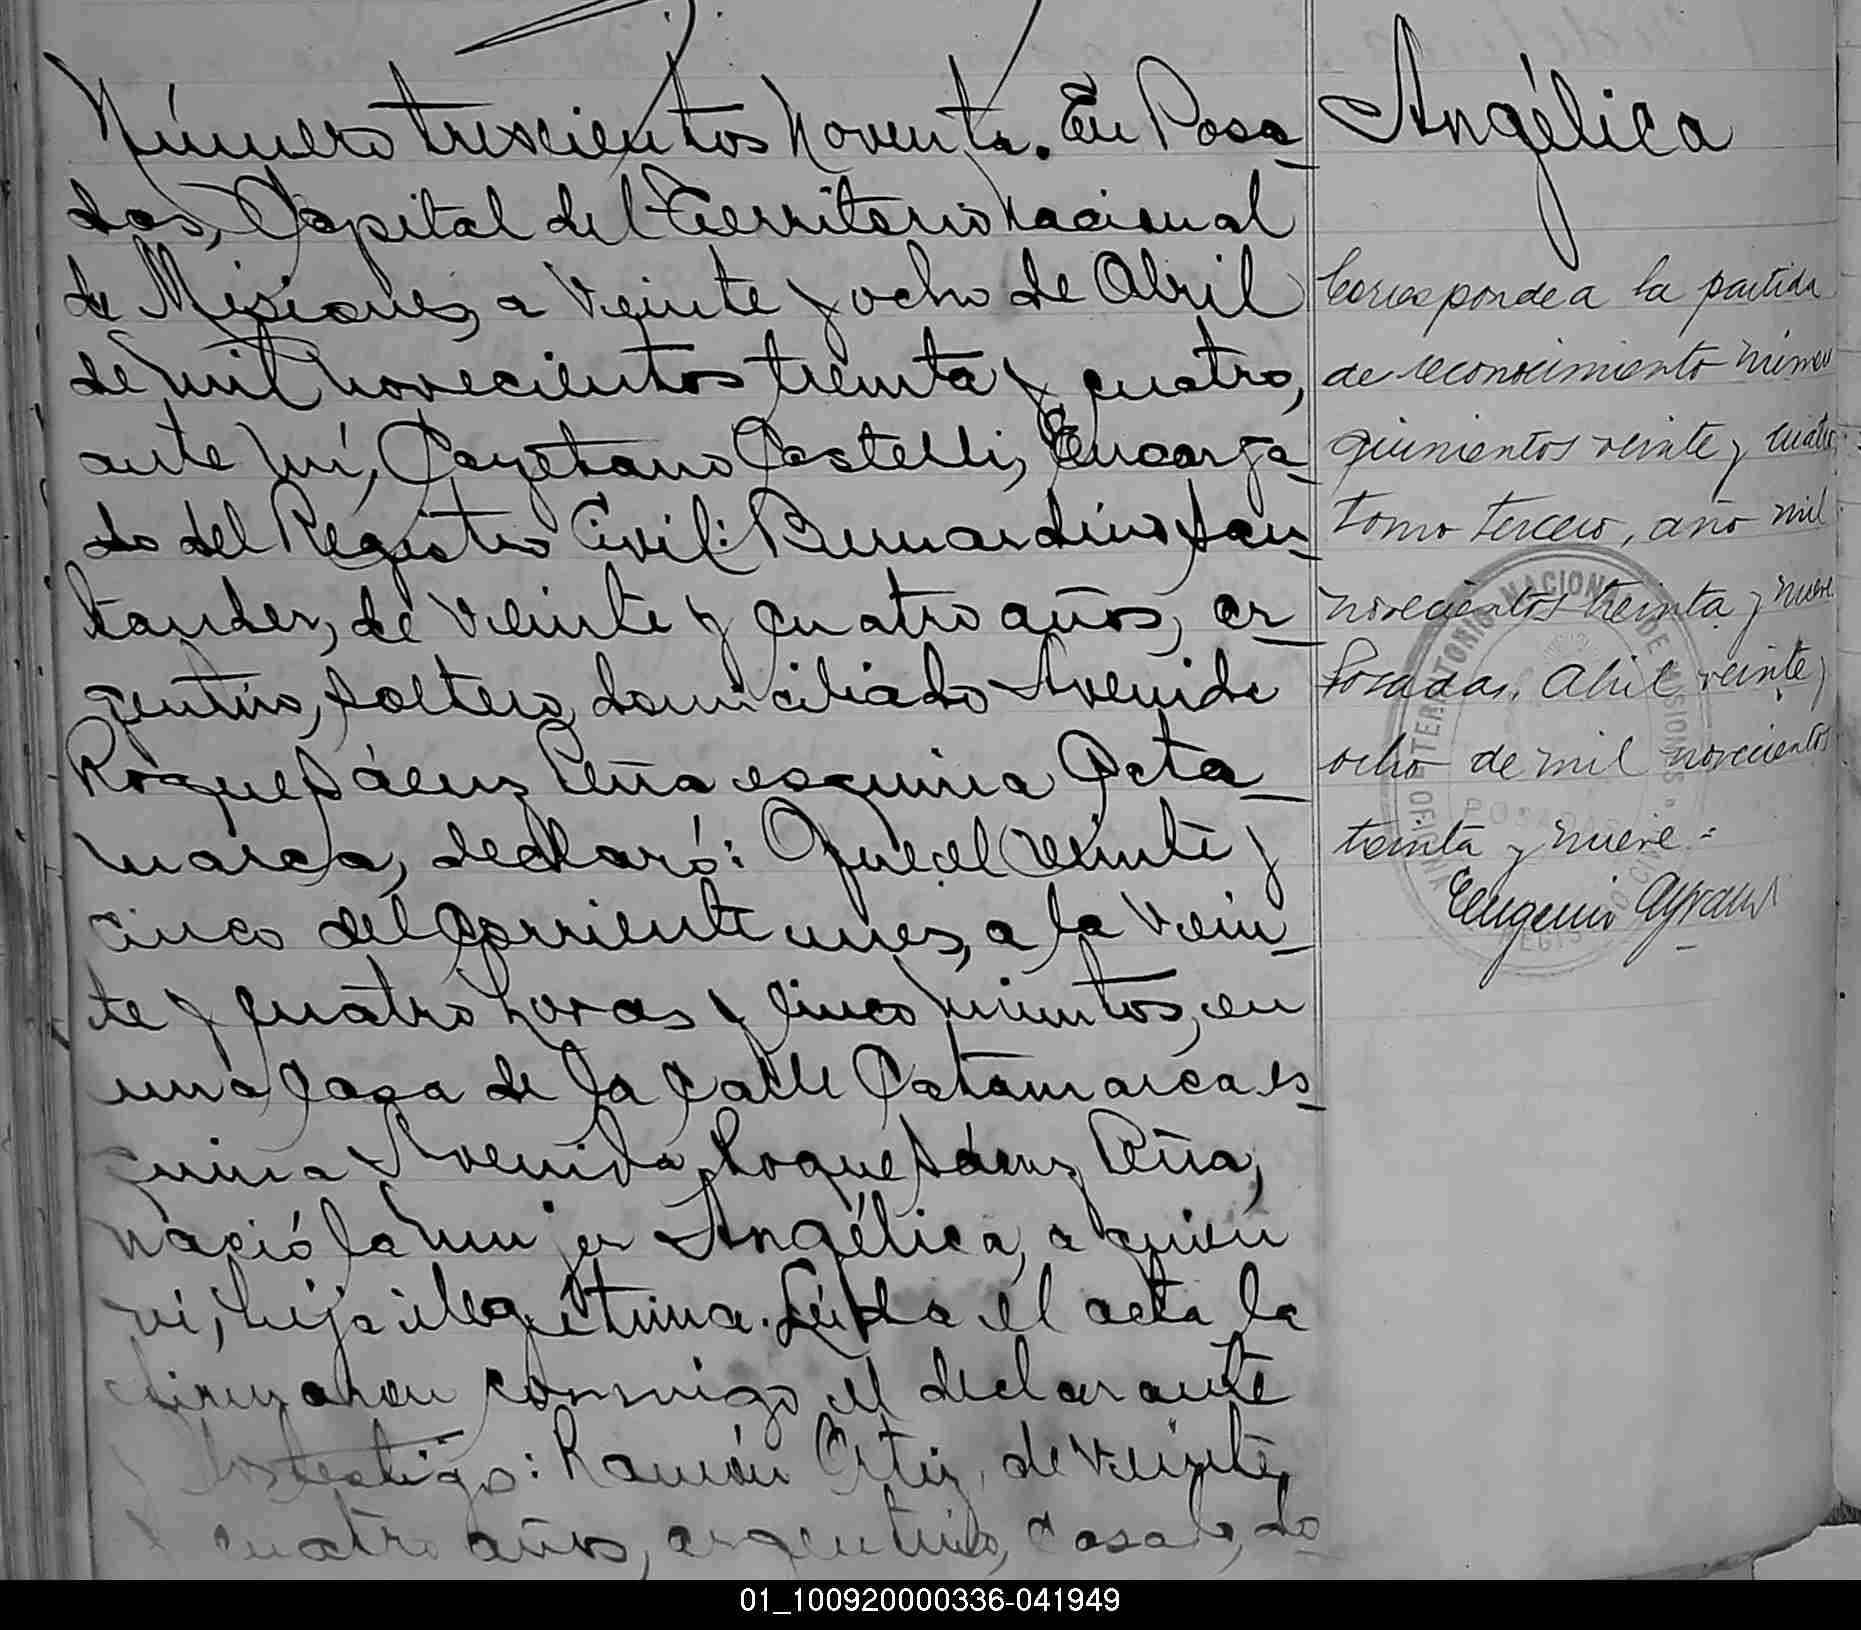 Número trescientos noventa. En Posa-
das, Capital del Territorio nacional
de Misiones, a veinte y ocho de Abril
de mil novecientos treinta y cuatro,
ante mí, Cayetano Castelli, Encarga-
do del Registro Civil: Bernardino San-
tander, de veinte y cuatro años, ar-
gentino, soltero, domiciliado Avenida
Roque Sáenz Peña esquina Cata-
marca, declaró: Que el veinte y
cinco del corriente mes, a la vein-
te y cuatro horas y cinco minutos, en
una casa de la calle Catamarca es-
quina Avenida Roque Sáenz Peña,
nació la mujer Angélica, a quien
vi, hija ilegítima. Leída el acta la
firmaron conmigo el declarante
y los testigos: Ramón Ortiz, de veinte
y cuatro años, argentino, casado, do-
Angélica
Corresponde a la partida
de reconocimiento número
quinientos veinte y cuatro,
tomo tercero, año mil
novecientos treinta y nueve.
Posadas, Abril veinte y
ocho de mil novecientos
treinta y nueve.-
Eugenio
TERRITORIO NACIONAL DE MISIONES
POSADAS
01_100920000336-041949